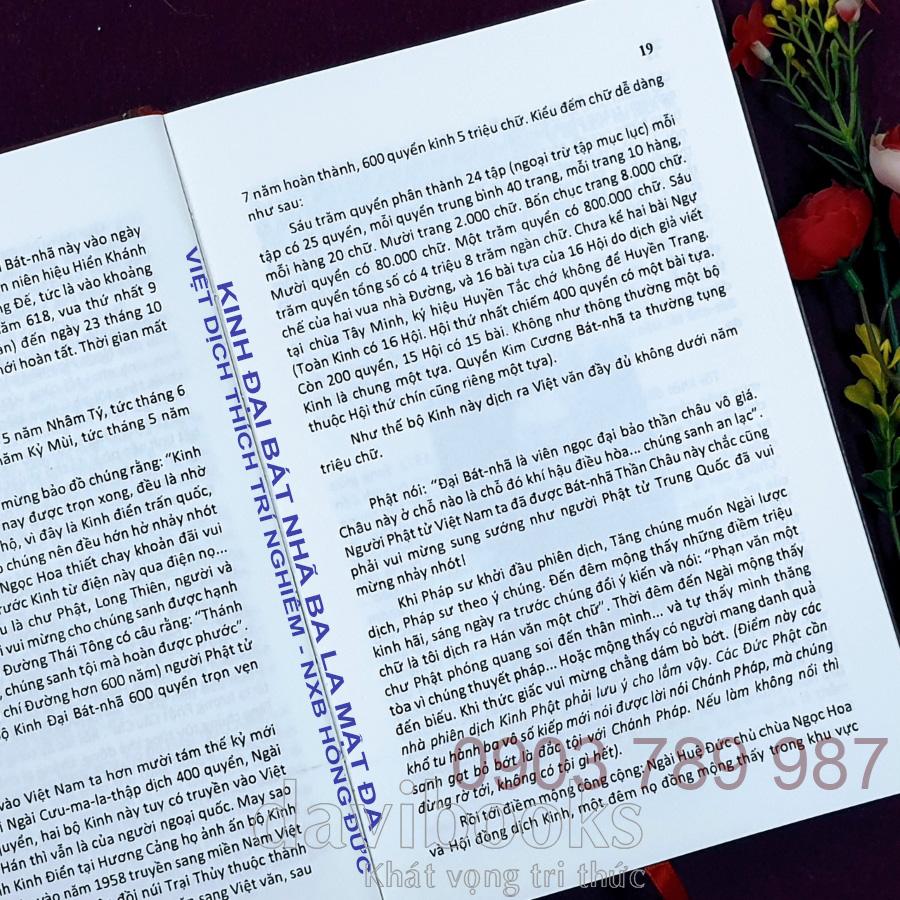 Bát-nhã này vào ngày
n niên hiệu Hiển Khánh
ng Đế, tức là vào khoảng
ăm 618, vua thứ nhất 9
an) đến ngày 23 tháng 10
nới hoàn tất. Thời gian mất
5 năm Nhâm Tý, tức tháng 6
năm Kỷ Mùi, tức tháng 5 năm
mừng bảo đồ chúng rằng: “Kinh
nay được trọn xong, đều là nhờ
hộ, vì đây là Kinh điển trấn quốc,
o chúng nên đều hớn hở nhảy nhót
Ngọc Hoa thiết chay khoản đãi vui
rước Kinh từ điện này qua điện nọ...
u là chư Phật, Long Thiên, người và
vui mừng cho chúng sanh được hạnh
Đường Thái Tông có câu rằng: “Thánh
, chúng sanh tội mà hoàn được phước”.
chí Đường hơn 600 năm) người Phật tử
Bộ Kinh Đại Bát-nhã 600 quyển trọn vẹn
vào Việt Nam ta hơn mười tám thế kỷ mới
i Ngài Cưu-ma-la-thập dịch 400 quyển, Ngài
uyển, hai bộ Kinh này tuy có truyền vào Việt
Hán thì vẫn là của người ngoại quốc. May sao
h Kinh Điển tại Hương Cảng họ ảnh ấn bộ Kinh
vào năm 1958 truyền sang miền Nam Việt
đồi núi Trại Thủy thuộc thành
sang Việt văn, sau
19
7 năm hoàn thành, 600 quyển kinh 5 triệu chữ. Kiểu đếm chữ dễ dàng
như sau:
Sáu trăm quyển phân thành 24 tập (ngoại trừ tập mục lục) mỗi
tập có 25 quyển, mỗi quyển trung bình 40 trang, mỗi trang 10 hàng,
mỗi hàng 20 chữ. Mười trang 2.000 chữ. Bốn chục trang 8.000 chữ.
Mười quyển có 80.000 chữ. Một trăm quyển có 800.000 chữ. Sáu
trăm quyển tổng số có 4 triệu 8 trăm ngàn chữ. Chưa kể hai bài Ngự
chế của hai vua nhà Đường, và 16 bài tựa của 16 Hội do dịch giả viết
tại chùa Tây Minh, ký hiệu Huyền Tắc chớ không để Huyền Trang,
(Toàn Kinh có 16 Hội. Hội thứ nhất chiếm 400 quyển có một bài tựa.
Còn 200 quyển, 15 Hội có 15 bài. Không như thông thường một bộ
Kinh là chung một tựa. Quyển Kim Cương Bát-nhã ta thường tụng
thuộc Hội thứ chín cũng riêng một tựa).
Như thế bộ Kinh này dịch ra Việt văn đầy đủ không dưới năm
triệu chữ.
Phật nói: “Đại Bát-nhã là viên ngọc đại bảo thần châu vô giá.
Châu này ở chỗ nào là chỗ đó khí hậu điều hòa... chúng sanh an lạc”.
Người Phật tử Việt Nam ta đã được Bát-nhã Thần Châu này chắc cũng
phải vui mừng sung sướng như người Phật tử Trung Quốc đã vui
mừng nhảy nhót!
Khi Pháp sư khởi đầu phiên dịch, Tăng chúng muốn Ngài lược
dịch, Pháp sư theo ý chúng. Đến đêm mộng thấy những điềm triệu
kinh hãi, sáng ngày ra trước chúng đổi ý kiến và nói: “Phạn văn một
chữ là tôi dịch ra Hán văn một chữ”. Thời đêm đến Ngài mộng thấy
chư Phật phóng quang soi đến thân mình... và tự thấy mình thăng
tòa vì chúng thuyết pháp... Hoặc mộng thấy có người mang danh quả
đến biếu. Khi thức giấc vui mừng chẳng dám bỏ bớt. (Điểm này các
nhà phiên dịch Kinh Phật phải lưu ý cho lắm vậy. Các Đức Phật cần
khổ tu hành vô số kiếp mới nói được lời nói Chánh Pháp, mà chúng
sanh gạt bỏ bớt là đắc tội với Chánh Pháp. Nếu làm không nổi thì
đừng rờ tới, không có tội gì hết).
Rồi tới điềm mộng công cộng: Ngài Huệ Đức Chủ chùa Ngọc Hoa
và Hội đồng dịch Kinh, một đêm nọ đồng mộng thấy trong khu vực
KINH ĐẠI BÁT NHÃ BA LA MẬT ĐA
VIỆT DỊCH THÍCH TRÍ NGHIÊM - NXB HỒNG ĐỨC
0903 789 987
davibooks
Khát vọng tri thức